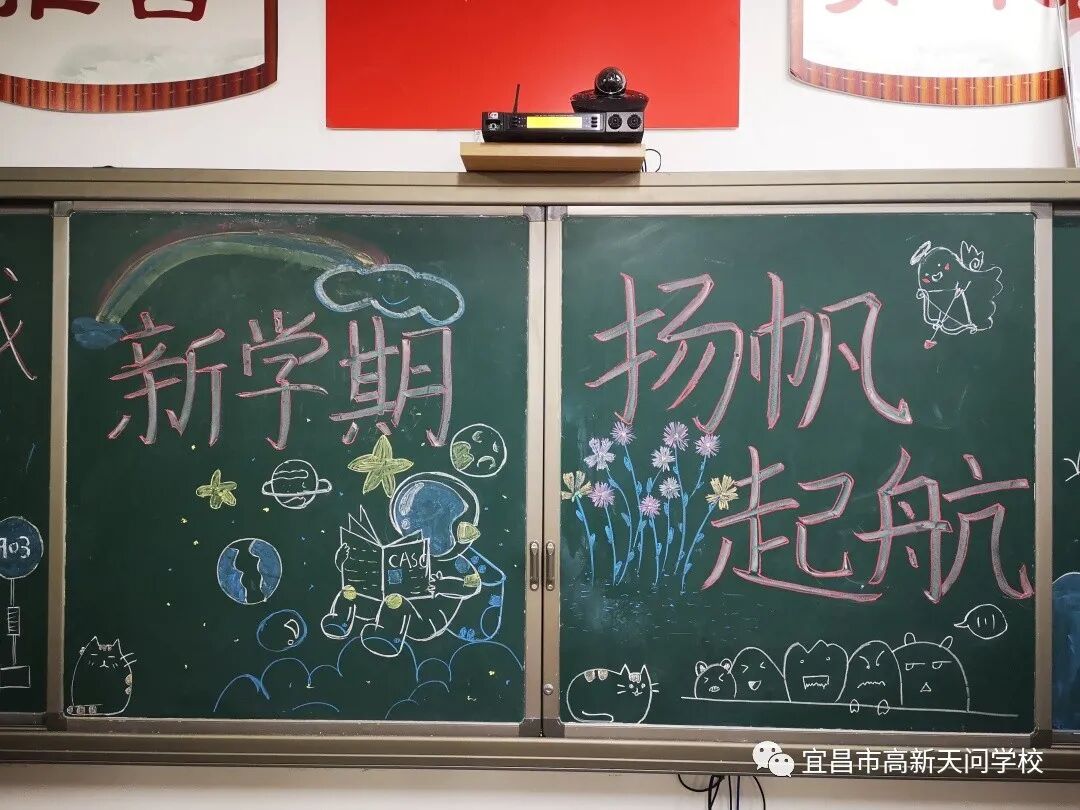 新学期
扬帆
起航
903
CASC
宜昌市高新天问学校